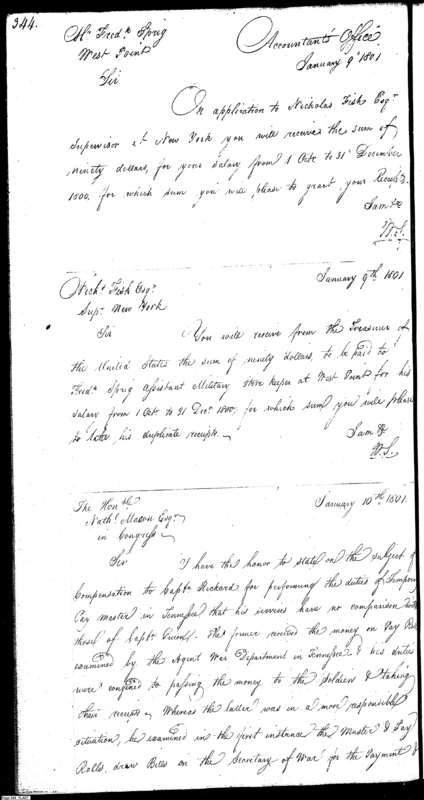 344.
Mr. Fredk. Sprig
West Point
Sir
Accountants Office
January 9th 1801
On application to Nicholas Fish Esqr.
Supervisor at New York you will receive the sum of
ninety dollars, for your salary from 1 Octr. to 31st December
1800, for which sum you will please to grant your Receipts.
I am &c
W. S.
January 9th. 1801
Nichs. Fish Esqr.
Supr. New York
Sir
You will receive from the Treasurer of
the United States the sum of ninety dollars, to be paid to
Fredk. Sprig Assistant Military Store keeper at West Point for his
salary from 1 Octr. to 31 Decr. 1800, for which sum you will please
to take his duplicate receipts.
I am &
W. S.
January 10th. 1801.
The Honble.
Nathl. Macon Esqr.
in Congress
Sir
I have the honor to state on the subject of
Compensation to Captn. Rickard for performing the duties of Temporary
Pay master in Tennessee that his services have no comparison with
those of Captn. The former received the money on Pay Rolls
examined by the Agent War Department in Tennessee & his duties
were confined to passing the money to the Soldiers & taking
their receipts. Whereas the latter was in a more responsible
situation, he examined in the first instance the Muster & Pay
Rolls, draw Bills on the Secretary of War for the Payment &